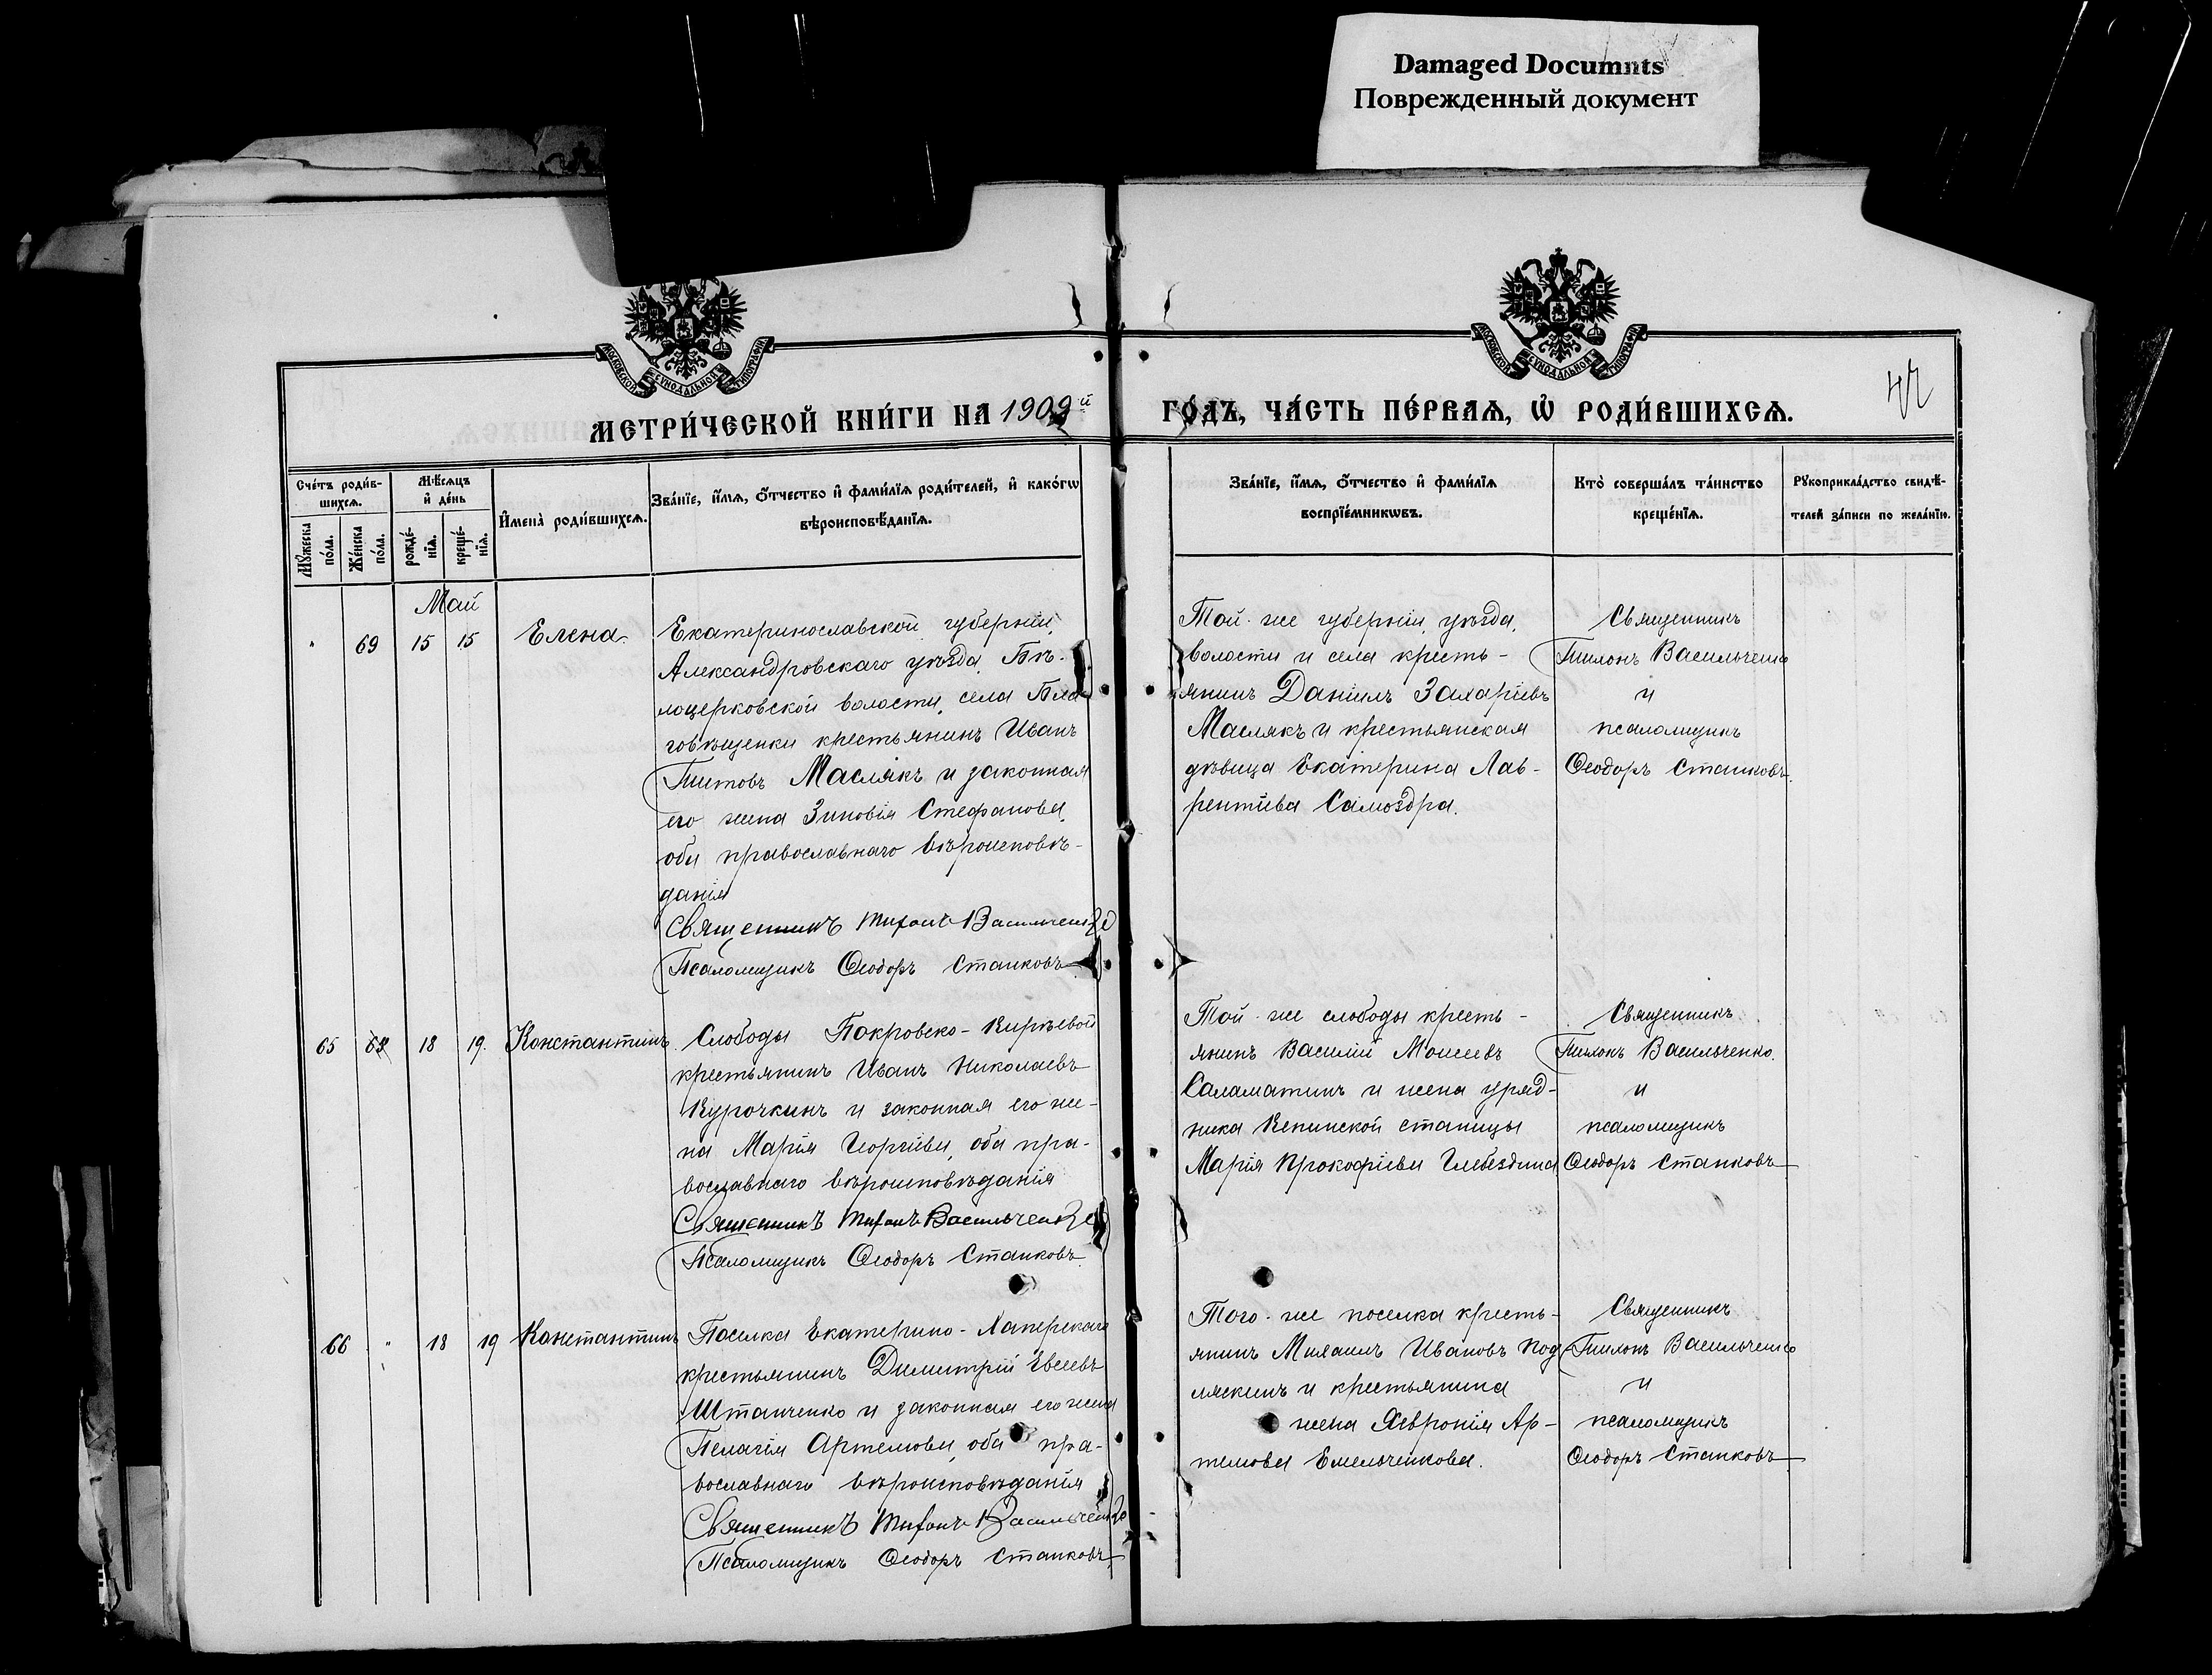 Damaged Documnts
Поврежденный документ
МОСКОВСКОЙ СУНОДАЛЬНОЙ ТИПОГРАФІИ
МОСКОВСКОЙ СУНОДАЛЬНОЙ ТИПОГРАФІИ
МЕТРИ́ЧЕСКОЙ КНИ́ГИ НА 1909й
ГО́ДЪ, ЧА́СТЬ ПЕ́РВАѦ, Ѡ҆ РОДИ́ВШИХСѦ.
Сче́тъ роди́в-
шихсѧ.
Мꙋ́жеска
по́ла.
Же́нска
по́ла.
Мѣ́сѧцъ
и҆ де́нь
рожде́-
нїѧ.
креще́-
нїѧ.
И҆мена̀ роди́вшихсѧ.
Зва́нїе, и҆́мѧ, ѻ҆́тчество и҆ фами́лїѧ роди́телей, и҆ како́гѡ
вѣроисповѣ́данїѧ.
Зва́нїе, и҆́мѧ, ѻ҆́тчество и҆ фами́лїѧ
воспрїе́мникѡвъ.
Кто̀ соверша́лъ та́инство
креще́нїѧ.
Рꙋкоприкла́дство свидѣ́-
телей за́писи по жела́нїю.
Май
" 69 15 15 Елена.
Екатеринославской губерніи,
Александровскаго уѣзда, Бѣ-
лоцерковской волости, села Бла-
говѣщенки крестьянинъ Иванъ
Титовъ Маслякъ и законная
его жена Зиновія Стефанова,
оба православнаго вѣроисповѣ-
данія
Священникъ Тихонъ Васильченко
Псаломщикъ Ѳеодоръ Станковъ
Той-же губерніи, уѣзда,
волости и села кресть-
янинъ Даніилъ Захаріевъ
Маслякъ и крестьянская
дѣвица Екатерина Лав-
рентіева Самоздра.
Священникъ
Тихонъ Васильченко
и
псаломщикъ
Ѳеодоръ Станковъ.
65 68 18 19. Константинъ.
Слободы Покровско-Кирѣевой
крестьянинъ Иванъ Николаевъ
Курочкинъ и законная его же-
на Марія Георгіева, оба пра-
вославнаго вѣроисповѣданія
Священникъ Тихонъ Васильченко
Псаломщикъ Ѳеодоръ Станковъ.
Той-же слободы кресть-
янинъ Василій Моисеевъ
Саламатинъ и жена уряд-
ника Кепинской станицы
Марія Прокофіева
Священникъ
Тихонъ Васильченко.
и
псаломщикъ
Ѳеодоръ Станковъ
66 " 18 19 Константинъ
Поселка Екатерино-Хаперскаго
крестьянинъ Димитрій Евсеевъ
Штанченко и законная его жена
Пелагія Артемова, оба пра-
вославнаго вѣроисповѣданія
Священникъ Тихонъ Васильченко
Псаломщикъ Ѳеодоръ Станковъ
Того-же поселка кресть-
янинъ Михаилъ Ивановъ Под-
ляскинъ и крестьянина
жена Хевронія Ар-
темова Емельченкова.
Священникъ
Тихонъ Васильченко
и
псаломщикъ
Ѳеодоръ Станковъ